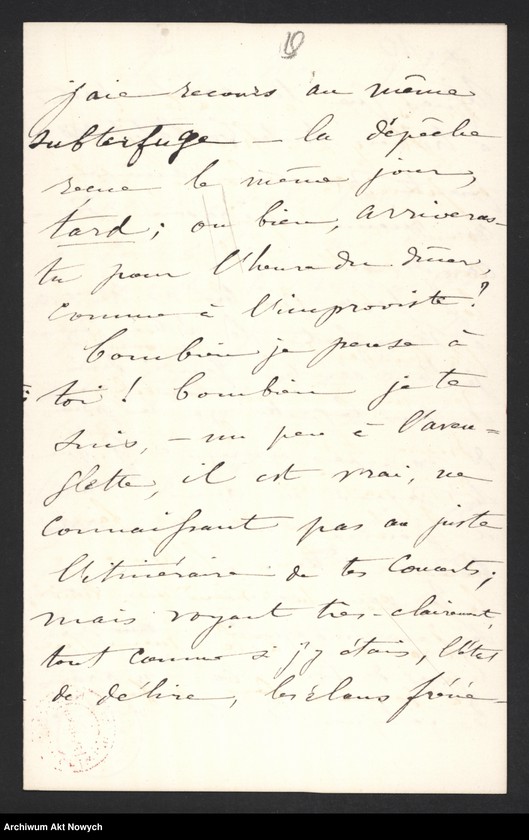 19
j'aie recours au même
subterfuge — la dépêche
reçue le même jour,
tard; ou bien, arriveras-
tu pour l'heure du dîner,
comme à l'improviste?
Combien je pense à
toi! Combien je te
suis, — un peu à l'aveu=
glette, il est vrai, ne
connaissant pas au juste
l'itinéraire de tes Concerts;
mais voyant très-clairement,
tout comme si j'y étais, l'état
de délire, les élans fréné-
Archiwum Akt Nowych